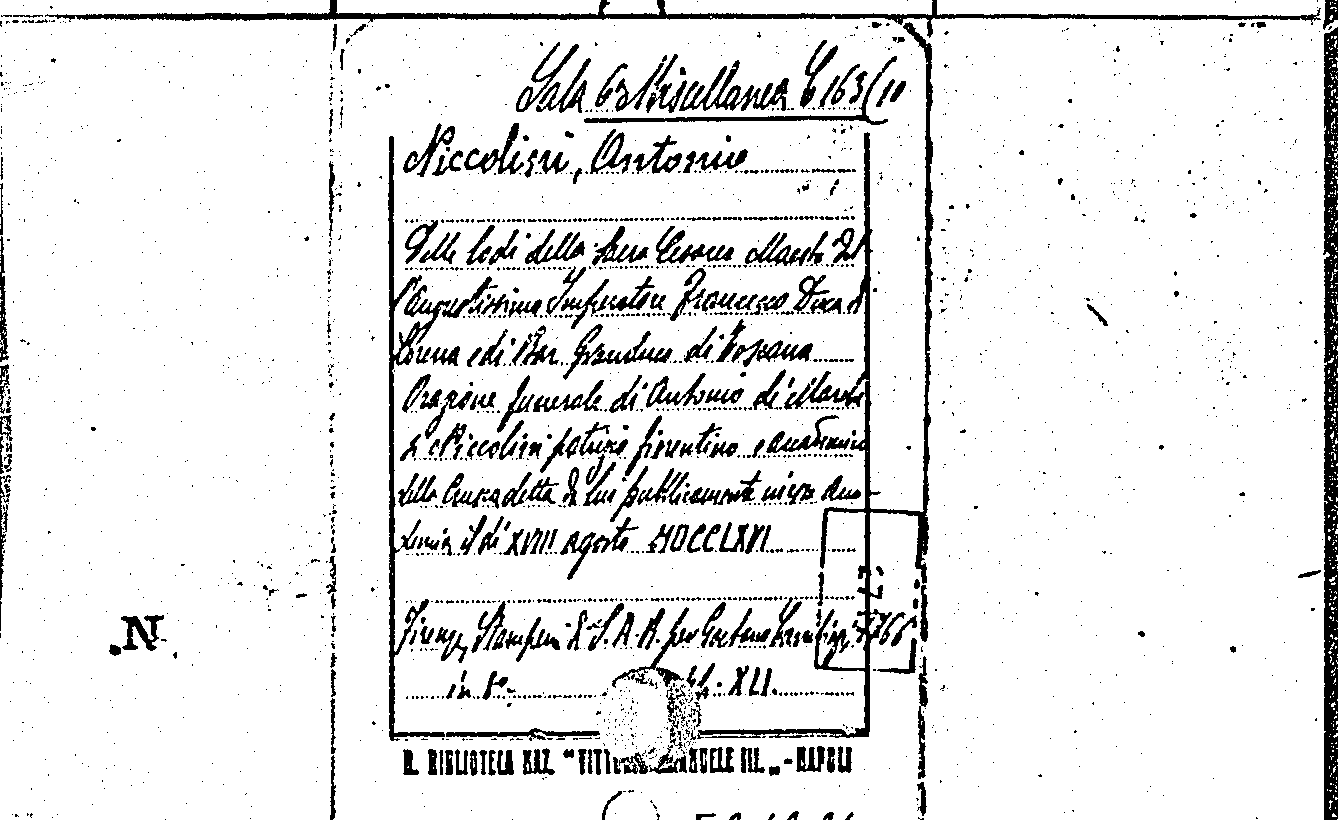 Sala 6ª Miscellanea C 163(10
Niccolini, Antonio
Delle lodi della Sacra Cesarea Maestà del
l'augustissimo Imperatore Francesco Duca di
Lorena e di Bar Granduca di Toscana
Orazione funerale di Antonio di
Niccolini patrizio fiorentino e accademico
della Crusca detta da lui pubblicamente acca-
demia il dì XVIII agosto MDCCLXVI
Firenze, Stamperia di S.A.R. per Gaetano 1766
in 8º. XLI.
.N.
R. BIBLIOTECA NAZ. "VITTORIO EMANUELE III. „ - NAPOLI